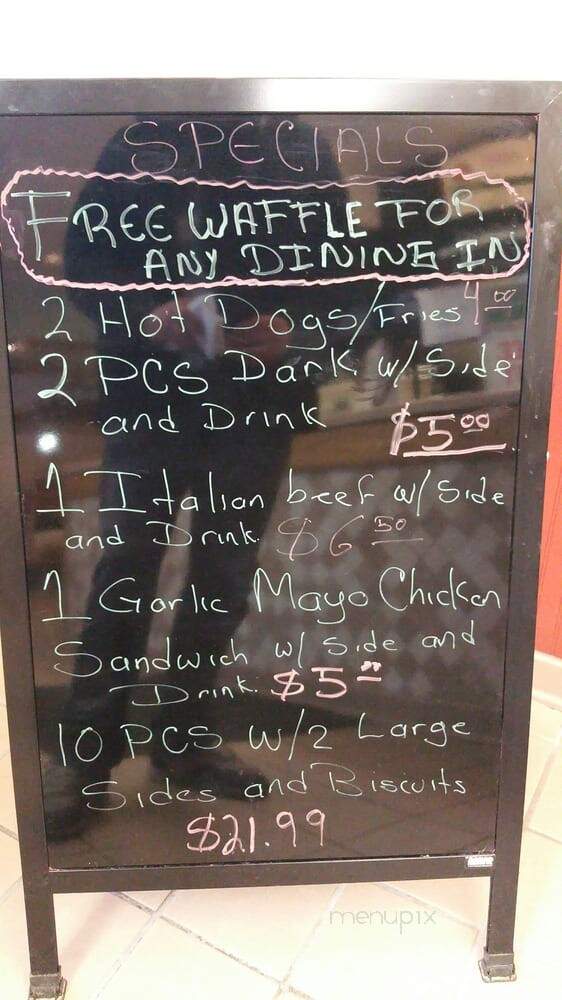 SPECIALS
FREE WAFFLE FOR
ANY DINING IN
2 Hot Dogs/Fries 4.00
2 PCS Dark w/ Side
and Drink $5.00
1 Italian beef w/ Side
and Drink. $6.50
1 Garlic Mayo Chicken
Sandwich w/ Side and
Drink. $5.00
10 PCS w/2 Large
Sides and Biscuits
$21.99
menupix